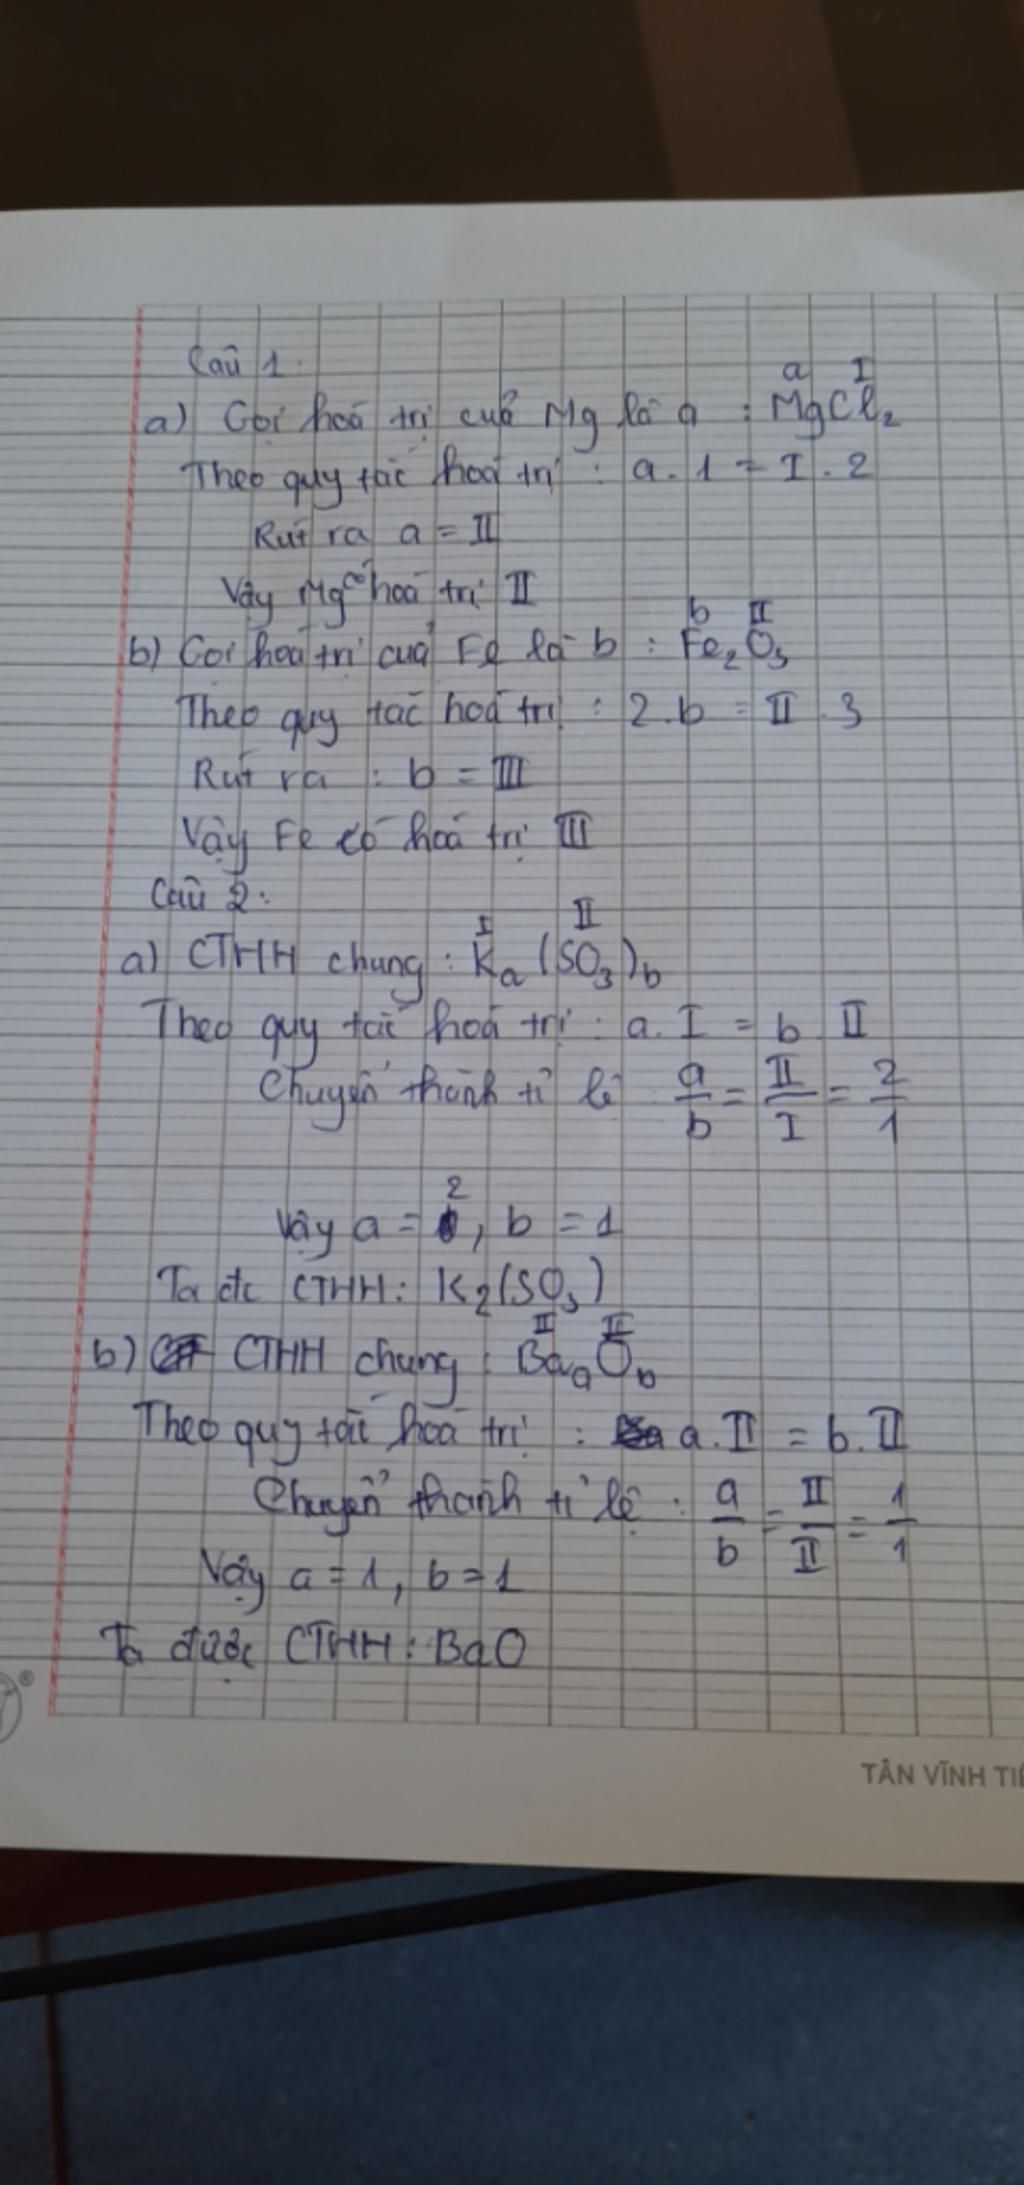 Câu 1:
a) Gọi hoá trị của Mg là a : MgCl₂
a I
Theo quy tắc hoá trị : a . 1 = I . 2
Rút ra a = II
Vậy Mg có hoá trị II
b) Gọi hoá trị của Fe là b : Fe₂O₃
b II
Theo quy tắc hoá trị : 2 . b = II . 3
Rút ra : b = III
Vậy Fe có hoá trị III
Câu 2:
a) CTHH chung : Kₐ (SO₃)b
I II
Theo quy tắc hoá trị : a. I = b II
Chuyển thành tỉ lệ a/b = II/I = 2/1
Vậy a = 2, b = 1
Ta đc CTHH: K₂(SO₃)
b) CTHH chung : BaaOb
II II
Theo quy tắc hoá trị : a. II = b. II
Chuyển thành tỉ lệ : a/b = II/II = 1/1
Vậy a = 1, b = 1
Ta được CTHH : BaO
®
TÂN VĨNH TI